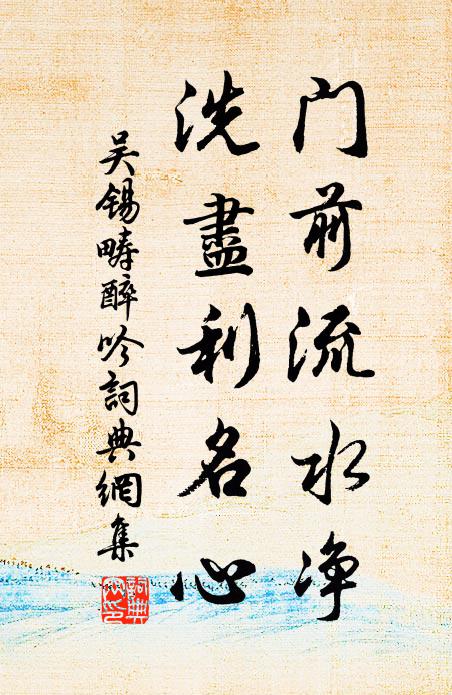 门前流水净
洗盡利名心
吴锡畴醉吟詞典網集